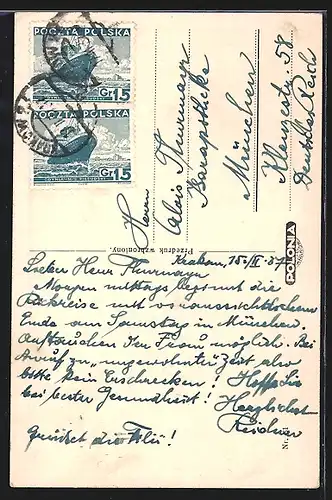 POCZTA POLSKA
Gr 15
POCZTA POLSKA
Gr 15
Herrn
Alois Thurmayr
Bavapotheke
München
Klenzestr. 58
Deutsches Reich
Przedruk wzbroniony.
POLONIA
Nr.
Krakau, 15./II. 37
Lieber Herr Thurmayr
Morgen mittags beginnt die
Rückreise mit voraussichtlichem
Ende am Samstag in München.
Auftauchen im möglich. Bei
Anruf zu "ungewohnter" Zeit also
bitte kein Erschrecken! Hoffe Sie
bei bester Gesundheit! Herzlichst
grüsset die !